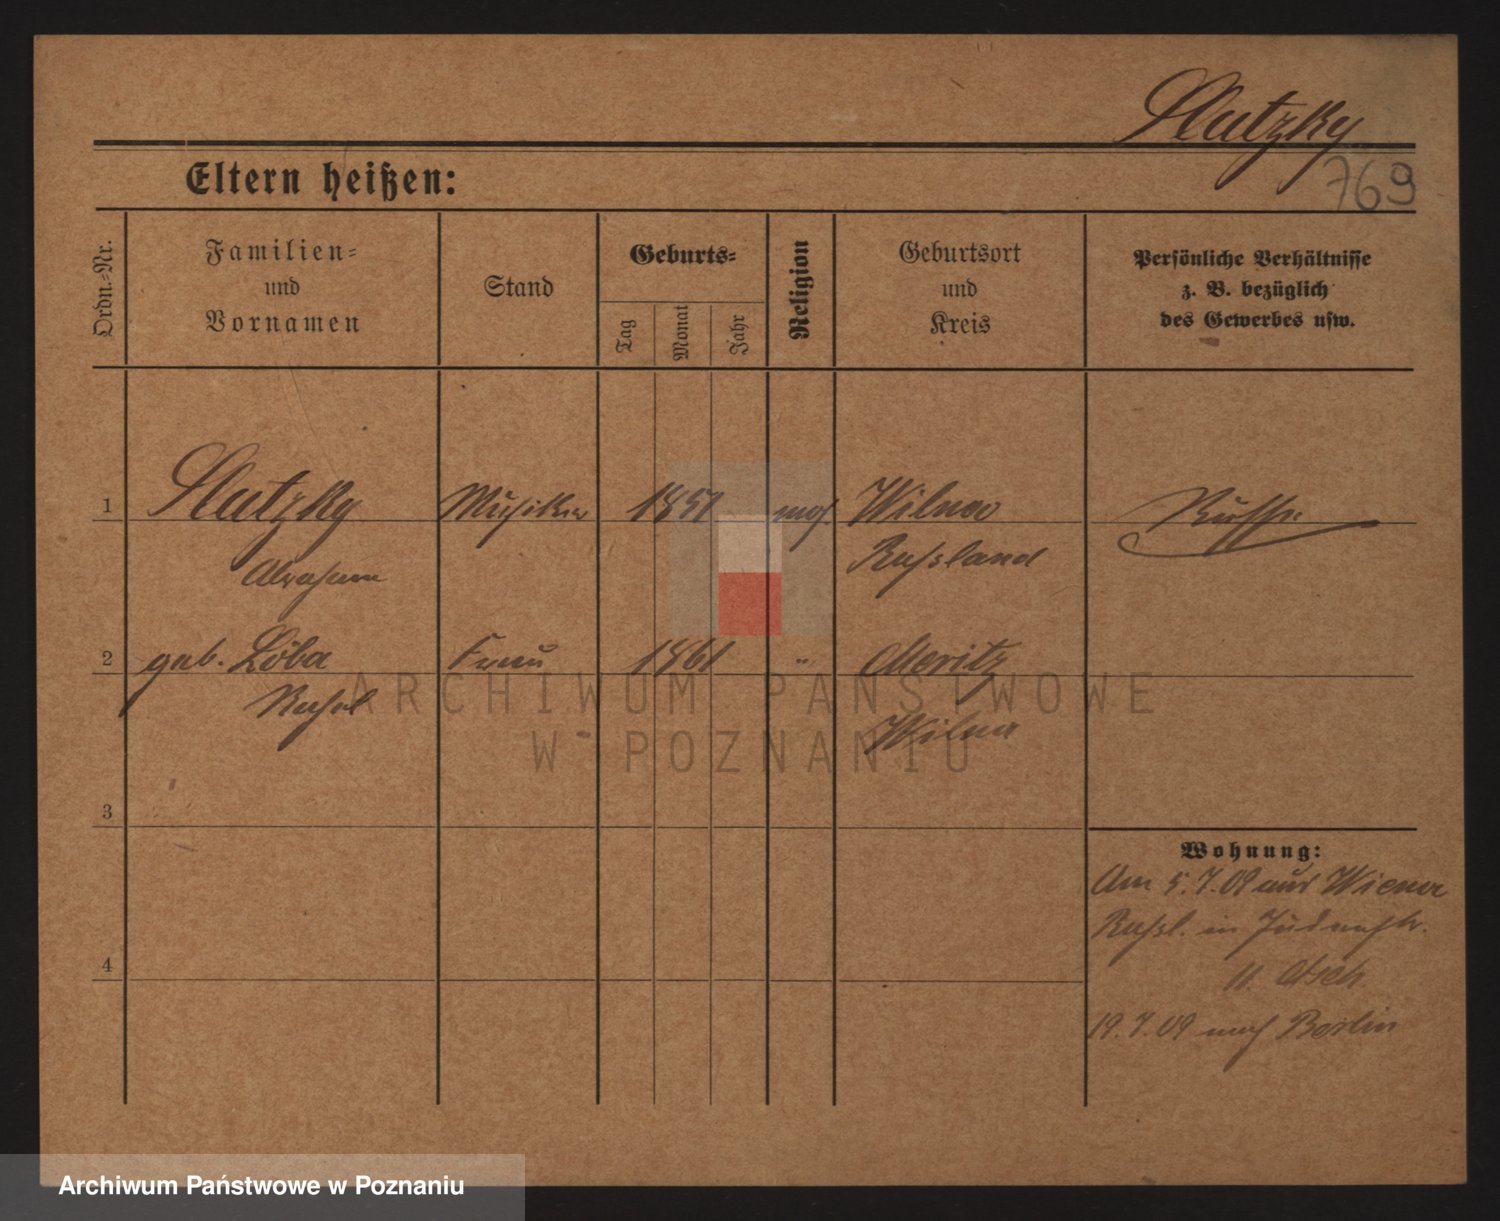 Slutzky
769
Eltern heißen:
Ordn.-Nr.
Familien-
und
Vornamen
Stand
Geburts-
Tag
Monat
Jahr
Religion
Geburtsort
und
Kreis
Persönliche Verhältnisse
z. B. bezüglich
des Gewerbes usw.
1
Slutzky
Musiker
1851
mos
Wilna
Russe
Abraham
Russland
2
geb. Löba
Frau
1861
"
Meritz
Rahel
Wilna
3
Wohnung:
Am 5.7.09 aus
Russl. in Judenstr.
4
11
19.7.09 nach Berlin
ARCHIWUM PAŃSTWOWE
W POZNANIU
Archiwum Państwowe w Poznaniu